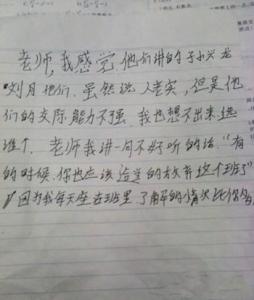 老师,我感觉他们讲的子小兴龙
刘月他们.虽然说人老实,但是他
们的交际能力不强.我也想不出来选
谁了.老师我讲一句不好听的话."有
的时候你也应该适当的放弃这个班了"
因为我每天座在班里了解的情况比你多